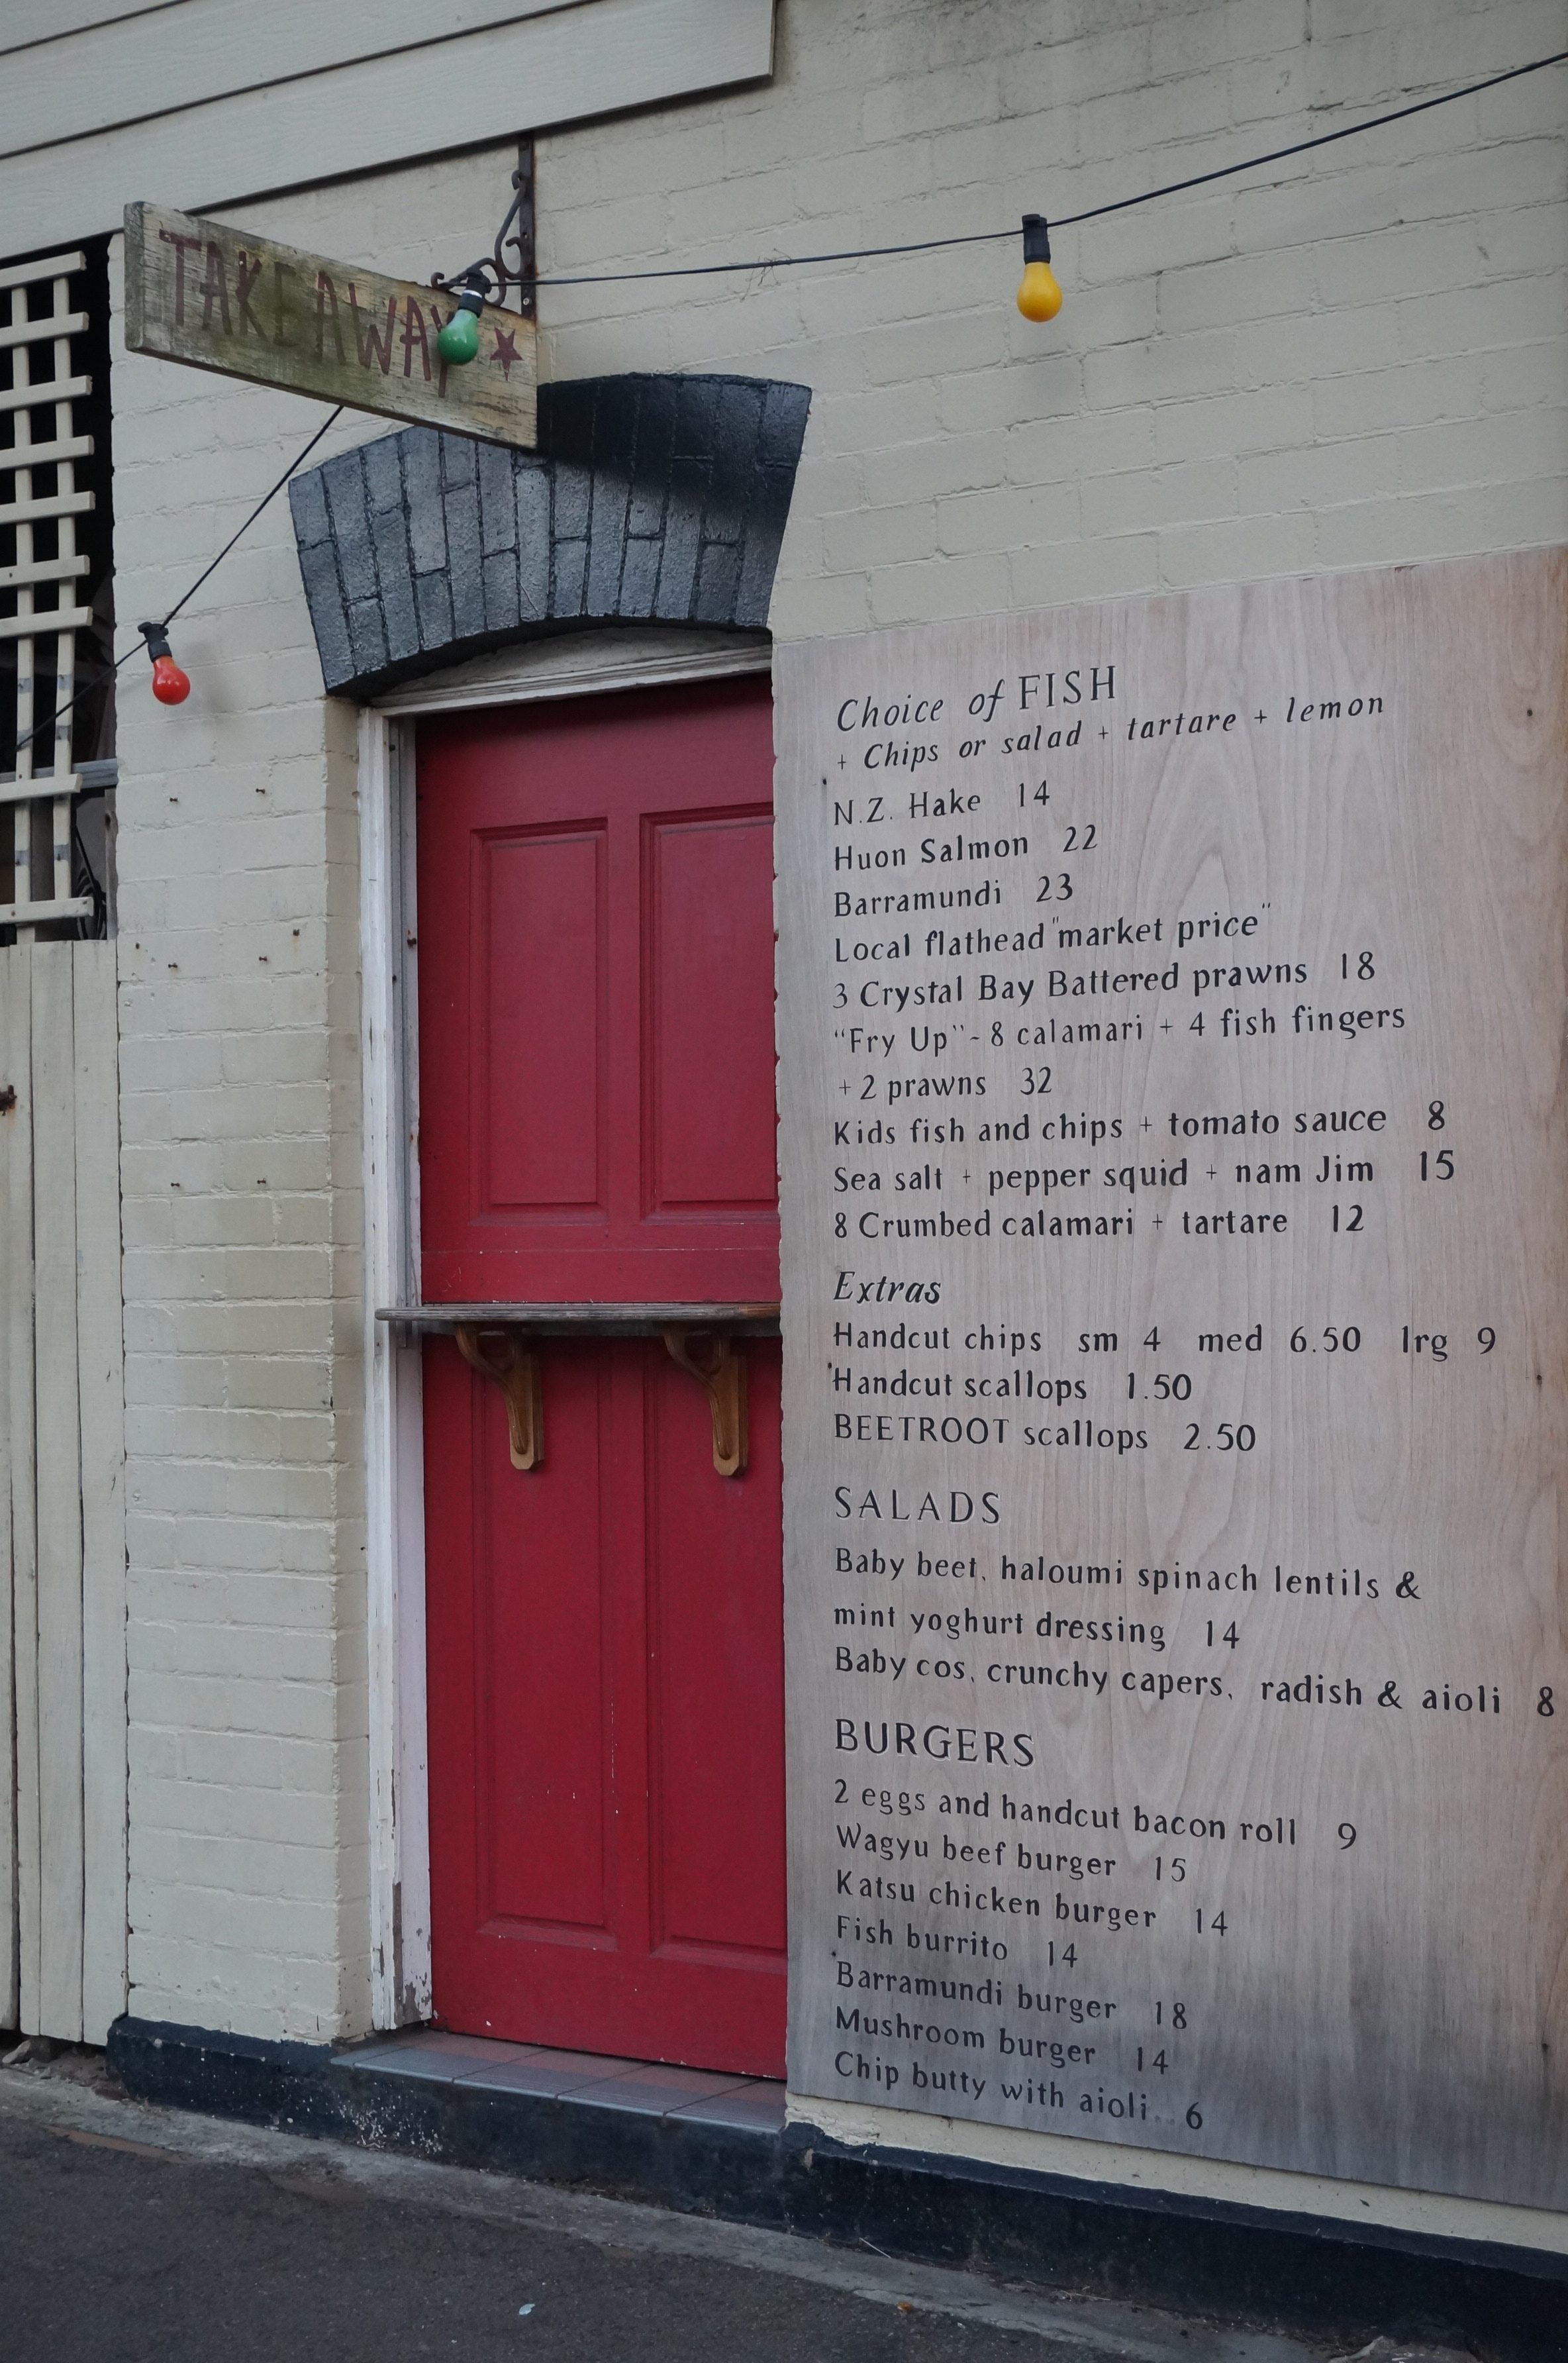 TAKEAWAY
Choice of FISH
+ Chips or salad + tartare + lemon
N.Z. Hake 14
Huon Salmon 22
Barramundi 23
Local flathead "market price"
3 Crystal Bay Battered prawns 18
"Fry Up" - 8 calamari + 4 fish fingers
+ 2 prawns 32
Kids fish and chips + tomato sauce 8
Sea salt + pepper squid + nam Jim 15
8 Crumbed calamari + tartare 12
Extras
Handcut chips sm 4 med 6.50 lrg 9
Handcut scallops 1.50
BEETROOT scallops 2.50
SALADS
Baby beet, haloumi spinach lentils &
mint yoghurt dressing 14
Baby cos, crunchy capers, radish & aioli 8
BURGERS
2 eggs and handcut bacon roll 9
Wagyu beef burger 15
Katsu chicken burger 14
Fish burrito 14
Barramundi burger 18
Mushroom burger 14
Chip butty with aioli 6